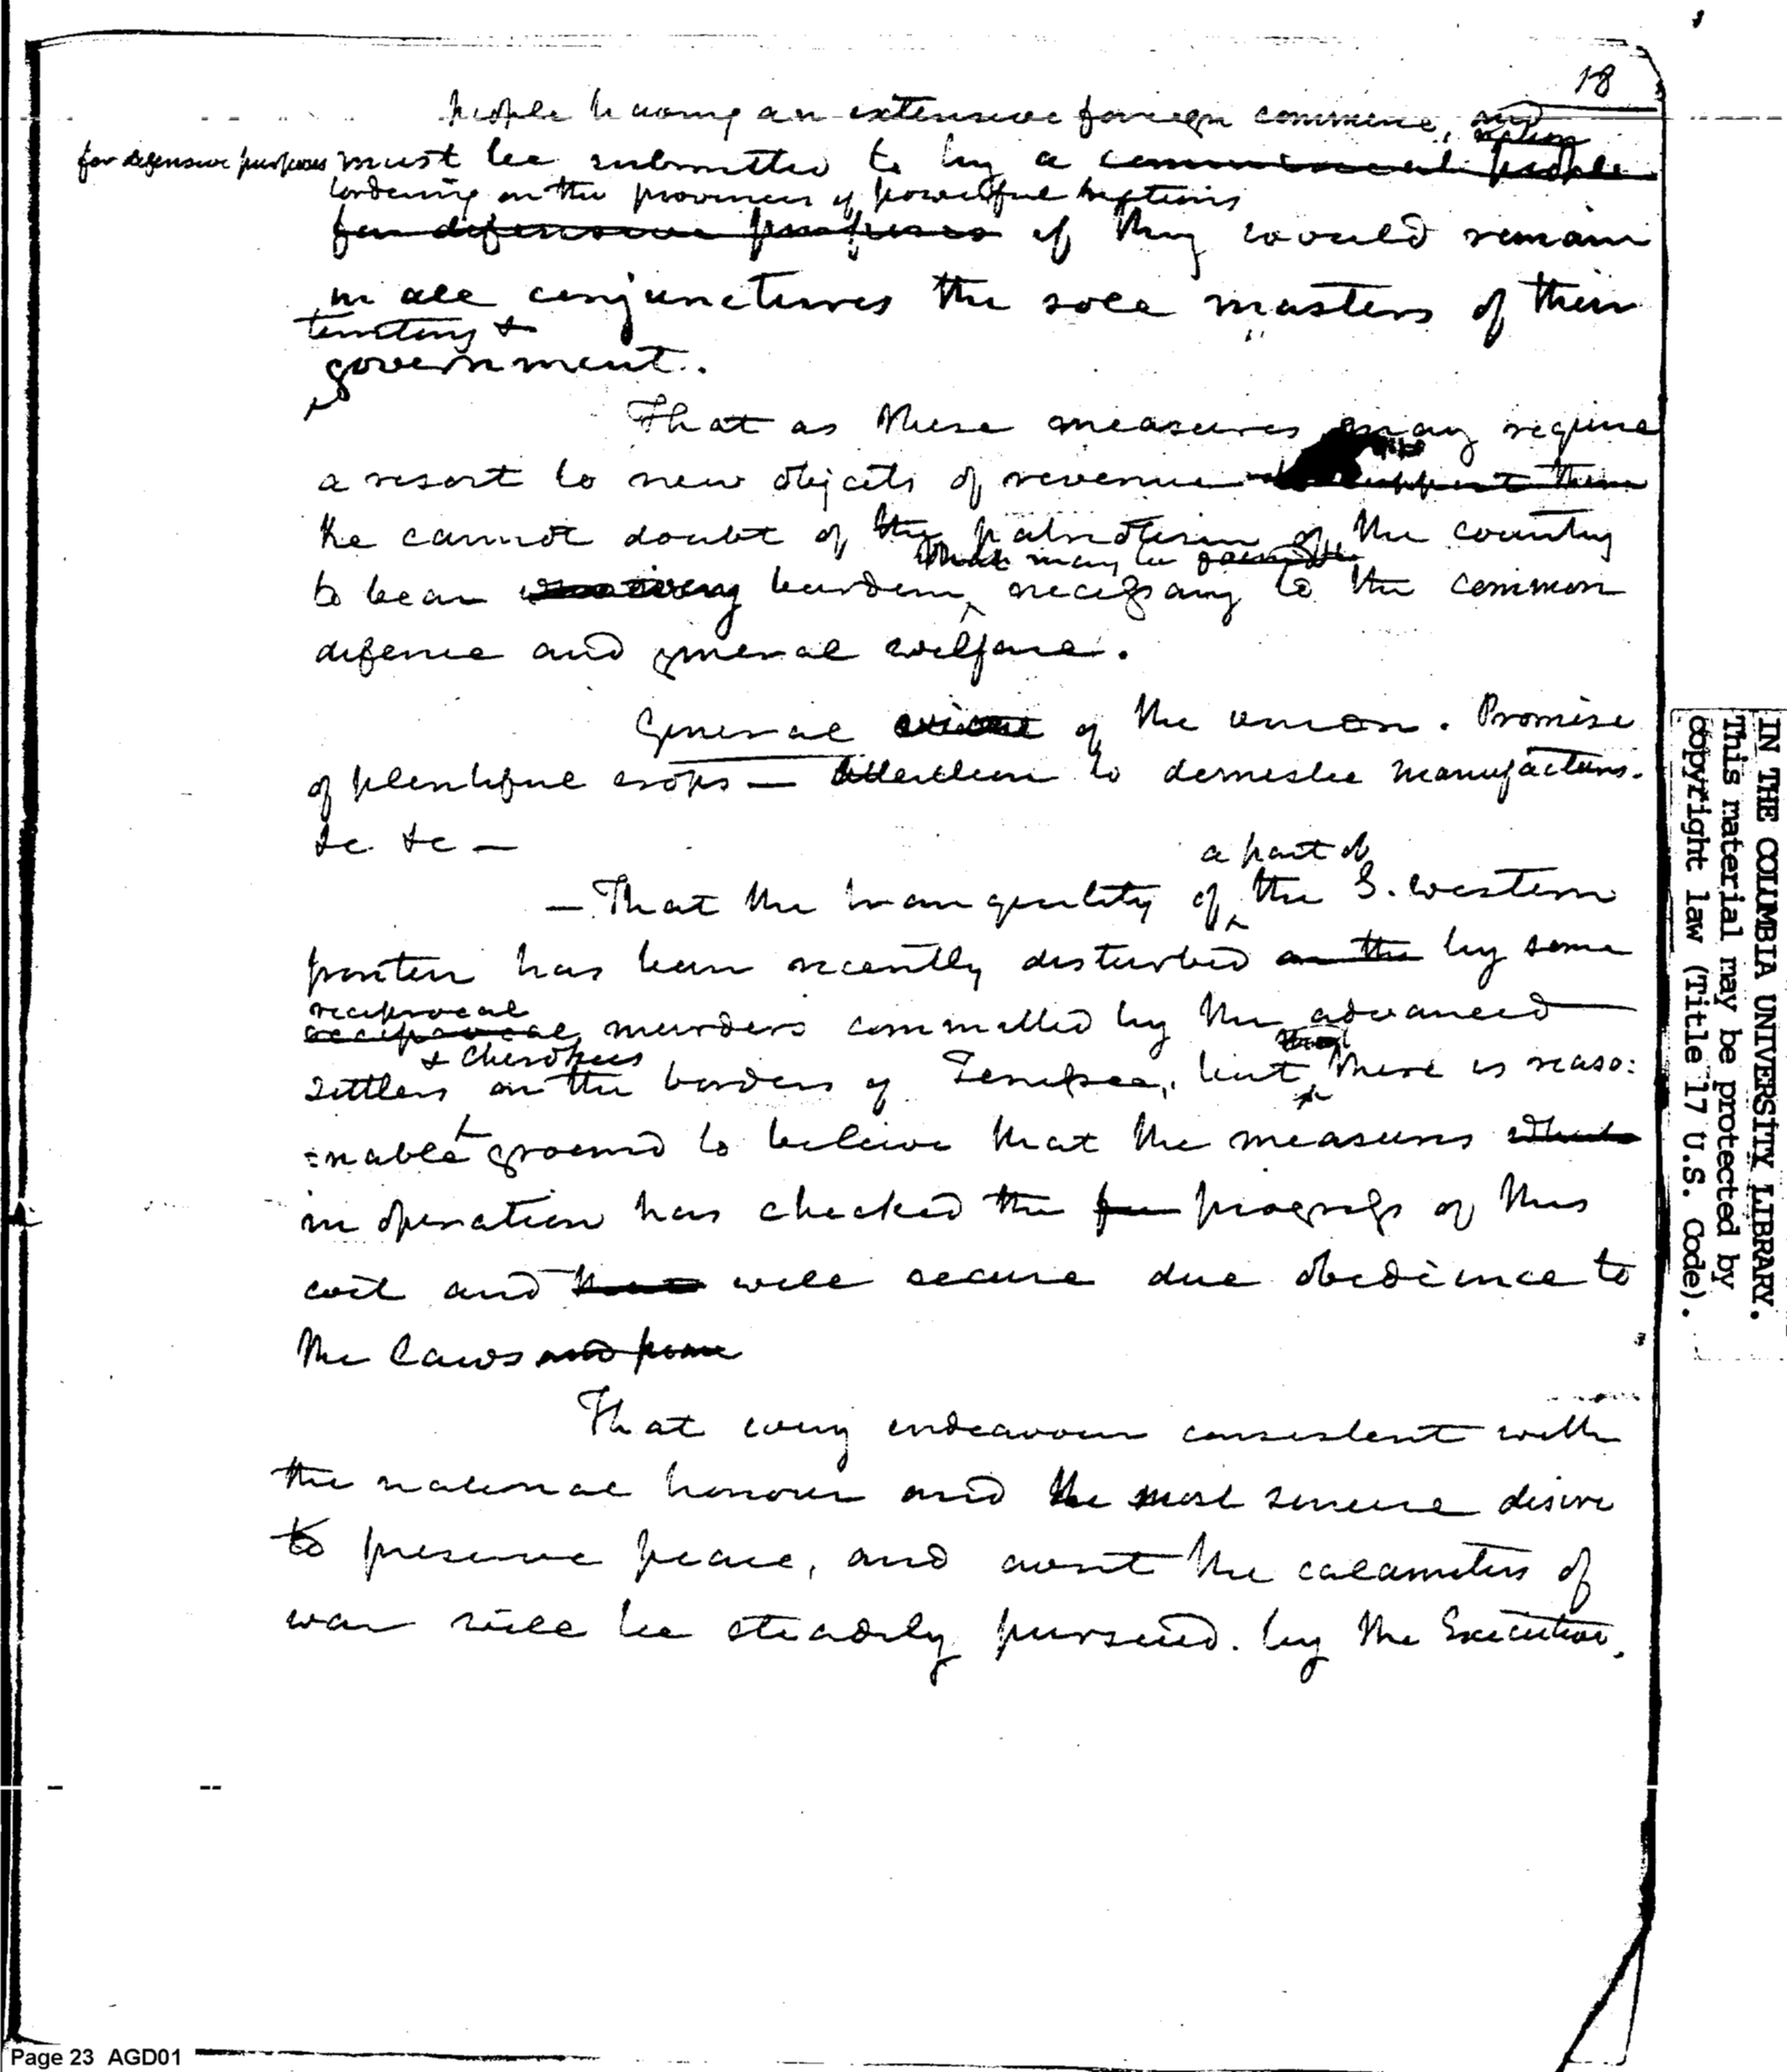 18
people having an extensive foreign commerce, and
nation
for defensive purposes must be submitted to by a commercial people
bordering on the provinces of powerful nations
for defensive purposes if they would remain
in all conjunctures the sole masters of their
territory &
government.
That as these measures may require
a resort to new objects of revenue to support them
he cannot doubt of the patriotism of the country
that may be
to bear burdens necessary to the common
defence and general welfare.
General of the union. Promise
of plentiful crops — Attention to domestic manufactures.
&c &c —
a part of
— That the tranquility of the S. western
frontier has been recently disturbed on the by some
reciprocal
reciprocal murders committed by the advanced
& Cherokees
settlers on the borders of Tenessee, but there is reaso:
:nable ground to believe that the measures which
in operation has checked the progress of this
evil and will secure due obedience to
the laws and peace
That every endeavour consistent with
the national honour and the most sincere desire
to preserve peace, and avert the calamities of
war will be steadily pursued. by the Executive.
IN THE COLUMBIA UNIVERSITY LIBRARY.
This material may be protected by
copyright law (Title 17 U.S. Code).
Page 23 AGD01